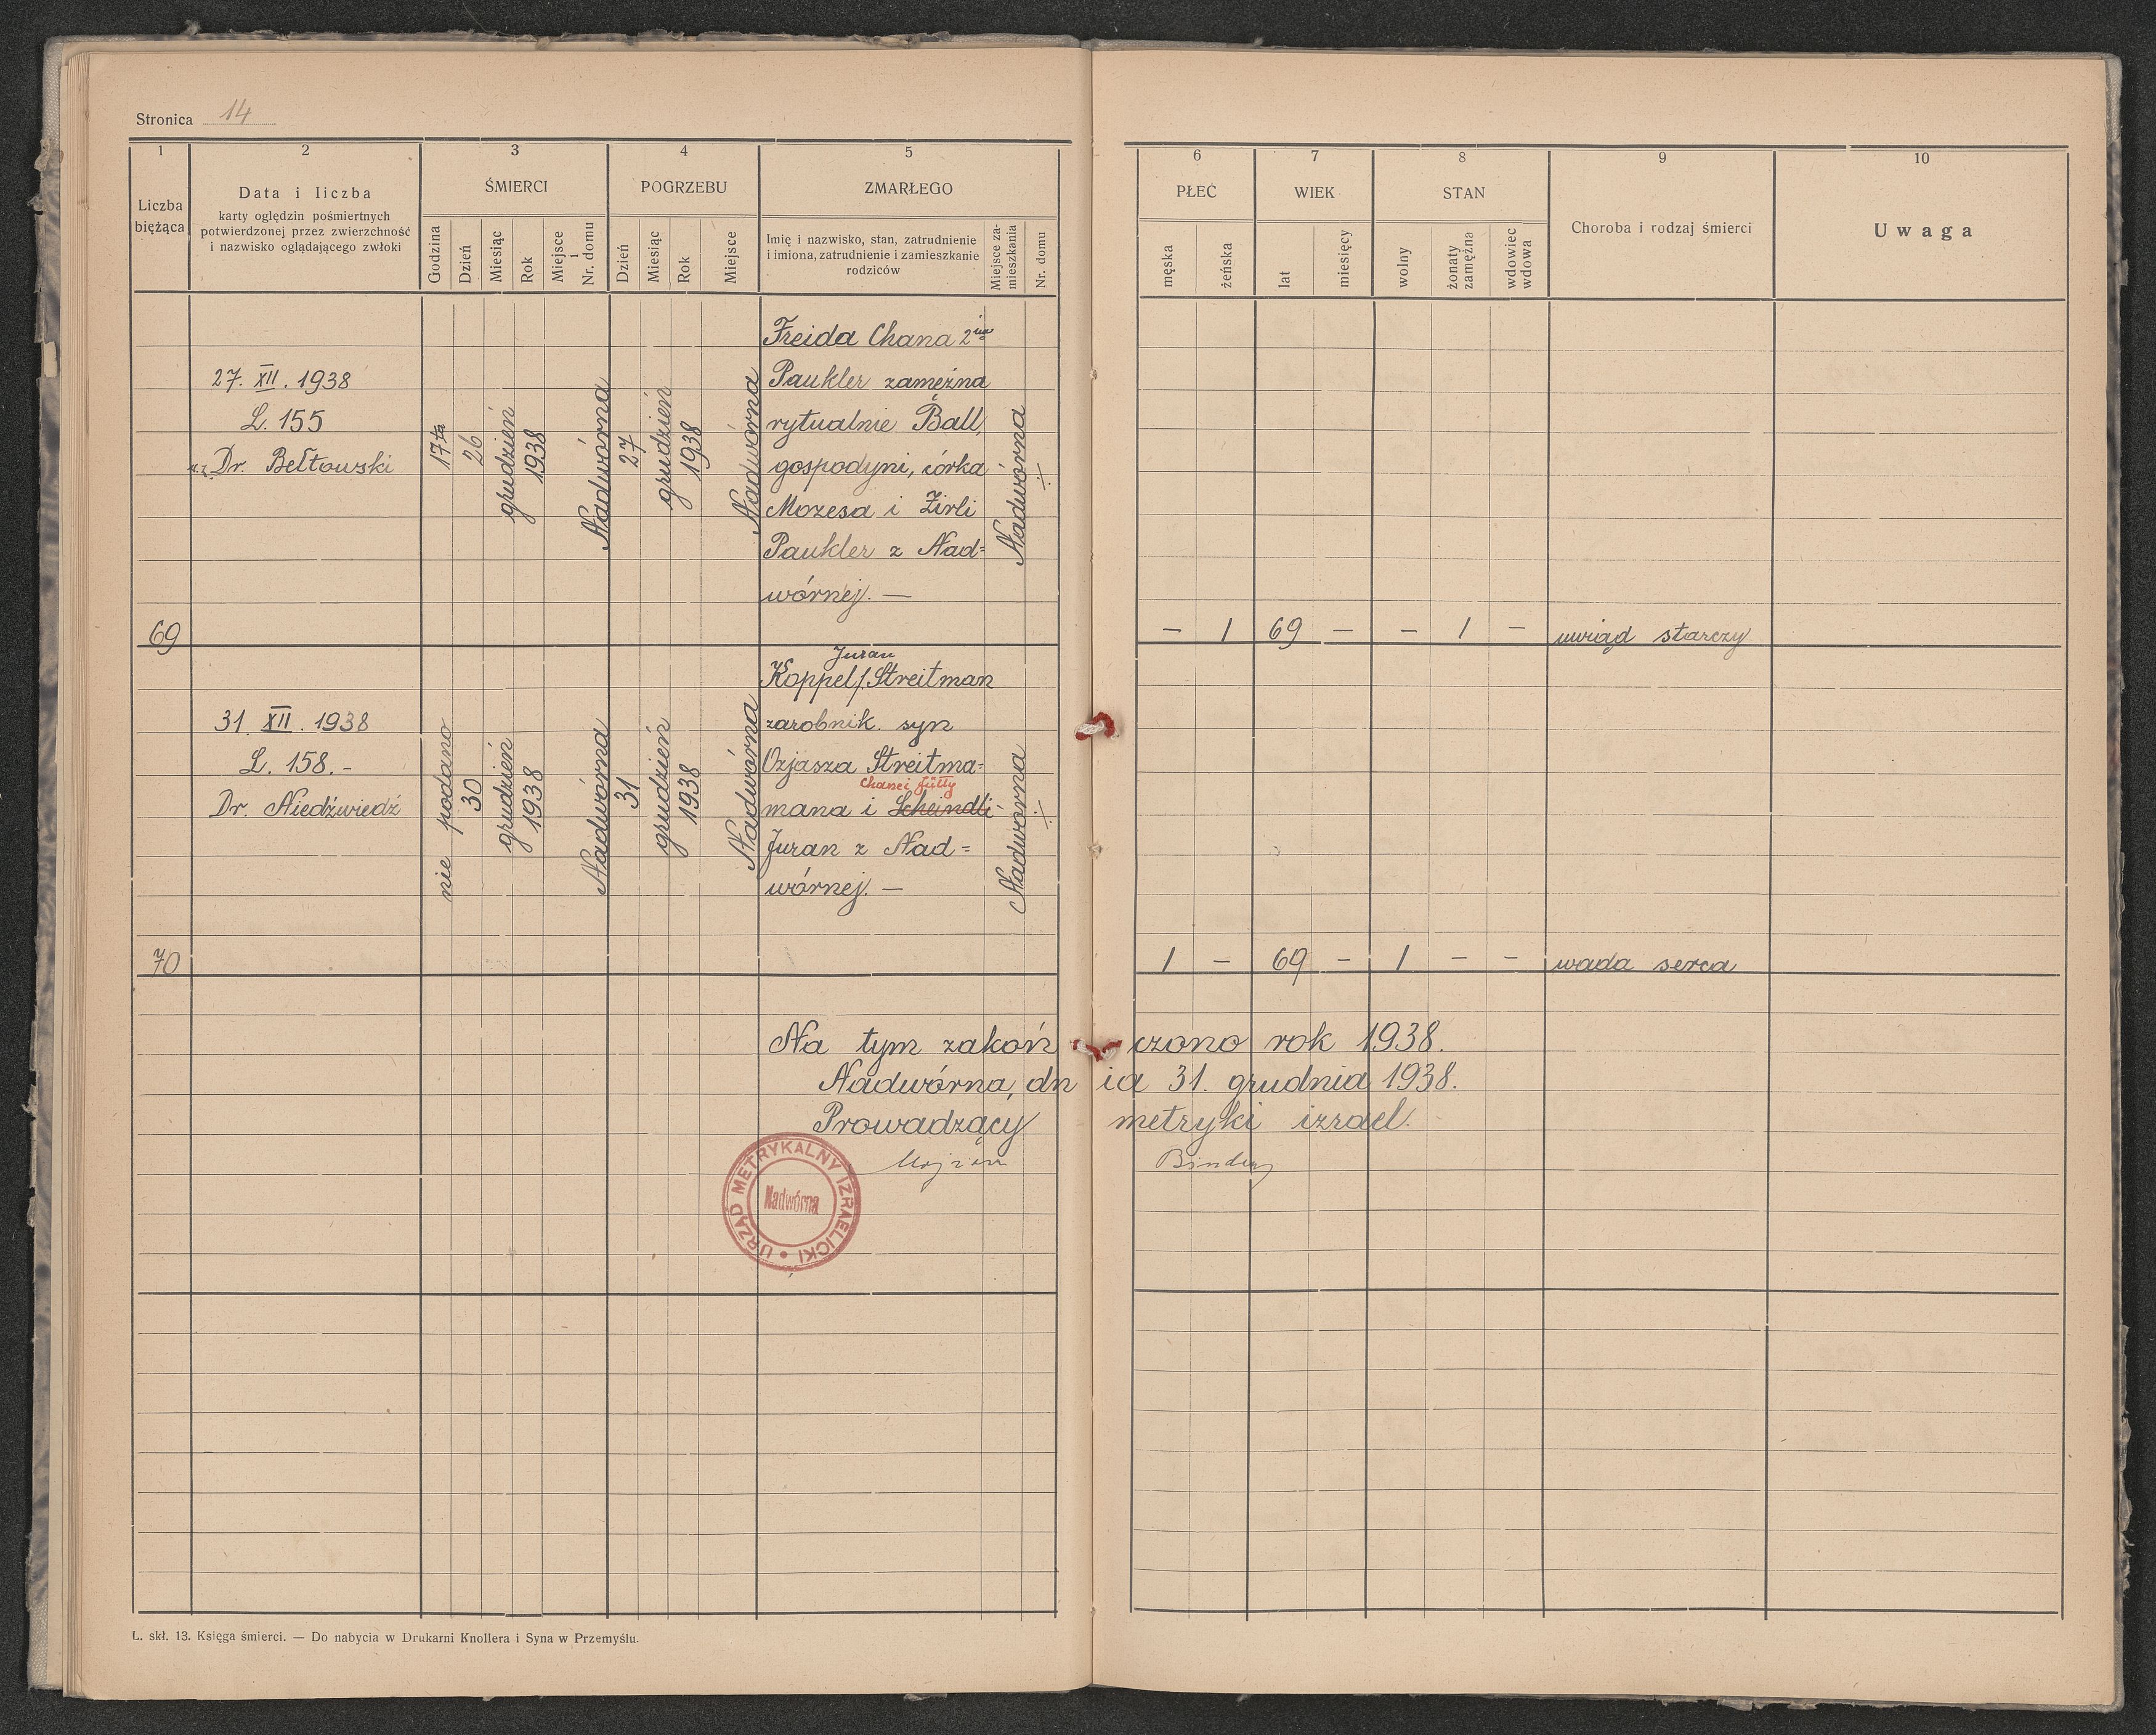 Stronica 14
1 2 3 4 5 6 7 8 9 10
Liczba bieżąca
Data i liczba
karty oględzin pośmiertnych
potwierdzonej przez zwierzchność
i nazwisko oglądającego zwłoki
ŚMIERCI
Godzina
Dzień
Miesiąc
Rok
Miejsce i Nr. domu
POGRZEBU
Dzień
Miesiąc
Rok
Miejsce
ZMARŁEGO
Imię i nazwisko, stan, zatrudnienie
i imiona, zatrudnienie i zamieszkanie
rodziców
Miejsce za-
mieszkania
Nr. domu
PŁEĆ
męska
żeńska
WIEK
lat
miesięcy
STAN
wolny
żonaty
zamężna
wdowiec
wdowa
Choroba i rodzaj śmierci
Uwaga
27. XII. 1938
L. 155
Dr. Bełtowski
17ta
26
grudzień
1938
Nadwórna
27
grudzień
1938
Nadwórna
Freida Chana 2im
Paukler zamężna
rytualnie Ball,
gospodyni, córka
Mozesa i Zirli
Paukler z Nad=
wórnej. —
Nadwórna
÷
69
— 1 69 — — 1 — uwiąd starczy
31. XII. 1938
L. 158.-
Dr. Niedźwiedź
nie podano
30
grudzień
1938
Nadwórna
31
grudzień
1938
Nadwórna
Juran
Koppel/Streitman
zarobnik. syn
Ozjasza Streitma=
Chanci Jütty
mana i Scheindli
Juran z Nad=
wórnej. —
Nadwórna
÷
70
1 — 69 — 1 — — wada serca
Na tym zakończono rok 1938.
Nadwórna, dnia 31. grudnia 1938.
Prowadzący metryki izrael.
Binder
URZĄD METRYKALNY IZRAELICKI •
Nadwórna
L. skł. 13. Księga śmierci. — Do nabycia w Drukarni Knollera i Syna w Przemyślu.